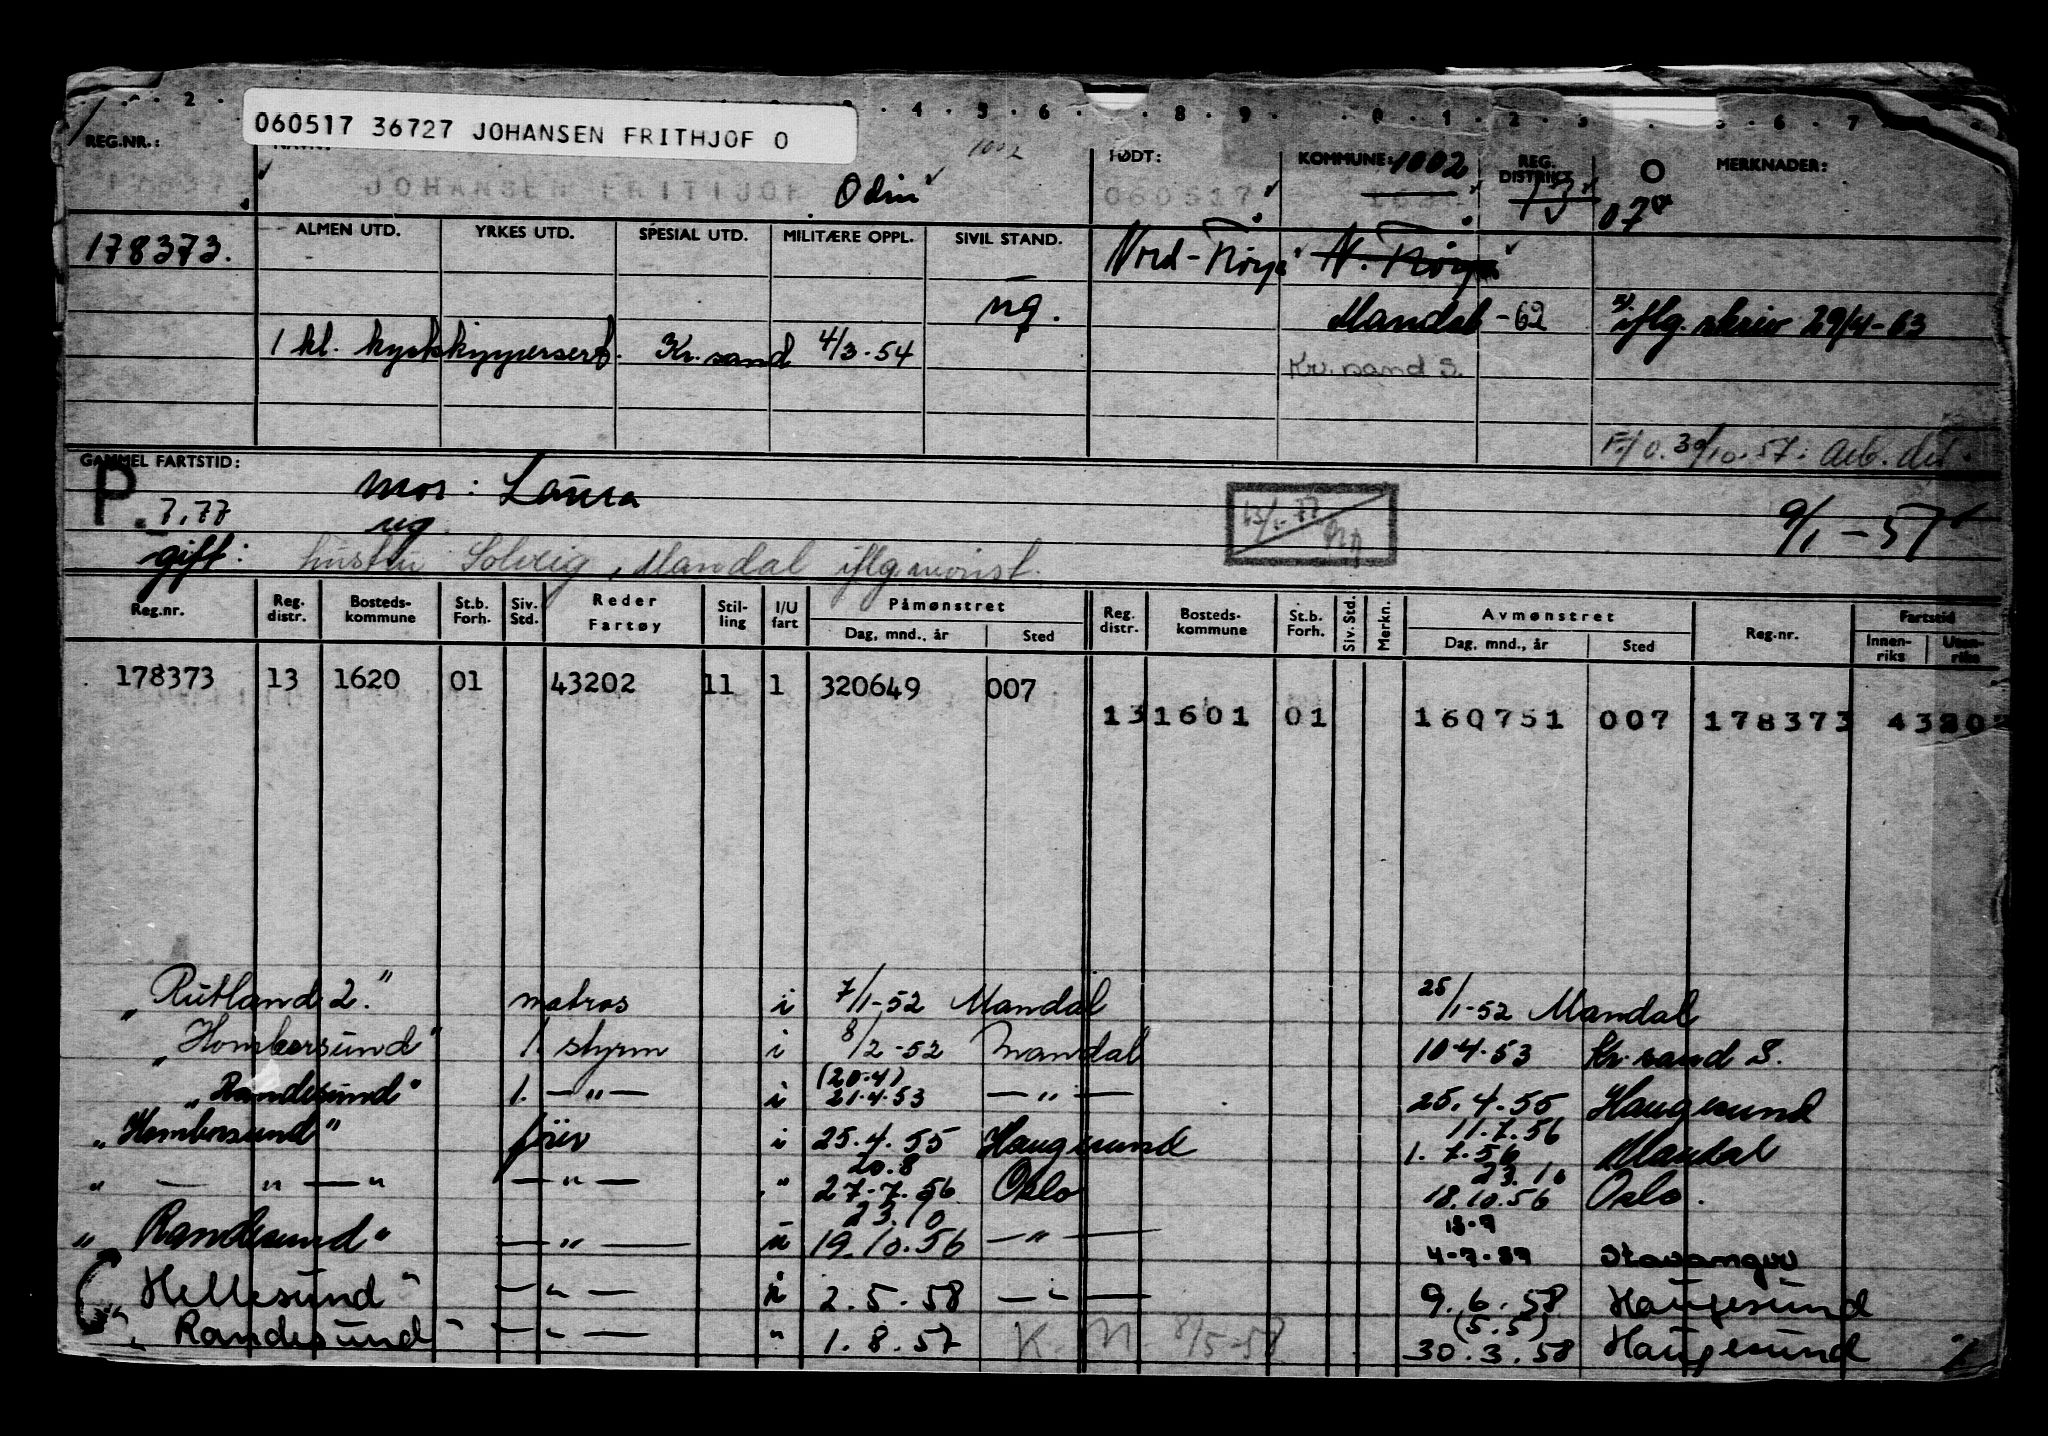 060517 36727 JOHANSEN FRITHJOF O
REG.NR.: FØDT: KOMMUNE: 1002 REG. DISTRIKT MERKNADER:
1002
JOHANSEN FRITHJOF Odin 060517 13 07
ALMEN UTD. YRKES UTD. SPESIAL UTD. MILITÆRE OPPL. SIVIL STAND.
178373. Nord-Frøya N. Frøya
ug. Mandal -62 iflg. skriv 29/4-63
1 kl. kystskippersert. Kr.sand 4/3-54
Kr.sand S.
30/10.57.
GAMMEL FARTSTID:
P. 7,77 mor: Laura
ug. 9/1-57
gift: hustru Solveig, Mandal iflg mønst.
Reg.nr. Reg. distr. Bosteds-kommune St.b. Forh. Siv. Std. Reder Fartøy Stil-ling I/U fart Påmønstret Dag, mnd., år Sted Reg. distr. Bosteds-kommune St.b. Forh. Siv. Std. Merkn. Avmønstret Dag, mnd., år Sted Reg.nr. Fartstid Innen-riks Uten-riks
178373 13 1620 01 43202 11 1 320649 007
13 1601 01 160751 007 178373 43202
"Rutland 2." matros i 7/1-52 Mandal 25/1-52 Mandal
"Homborsund" 1. styrm i 8/2-52 Mandal 10.4.53 Kr.sand S.
(20.4)
"Randesund" 1. — " — i 21.4.53 — " — 25.4.55 Haugesund
11.7.56
"Homborsund" fører i 25.4.55 Haugesund 1.7.56 Mandal
20.8 23.10
" — " — " — " — " 27.7.56 Oslo 18.10.56 Oslo.
23.10 13.9
"Randesund" — " — 19.10.56 — " — 4.7.57 Stavanger
Hellesund" — " — i 2.5.58 — " — 9.6.58 Haugesund
(5.5)
"Randesund" — " — " 1.8.57 K. M 8/5-58 30.3.58 Haugesund